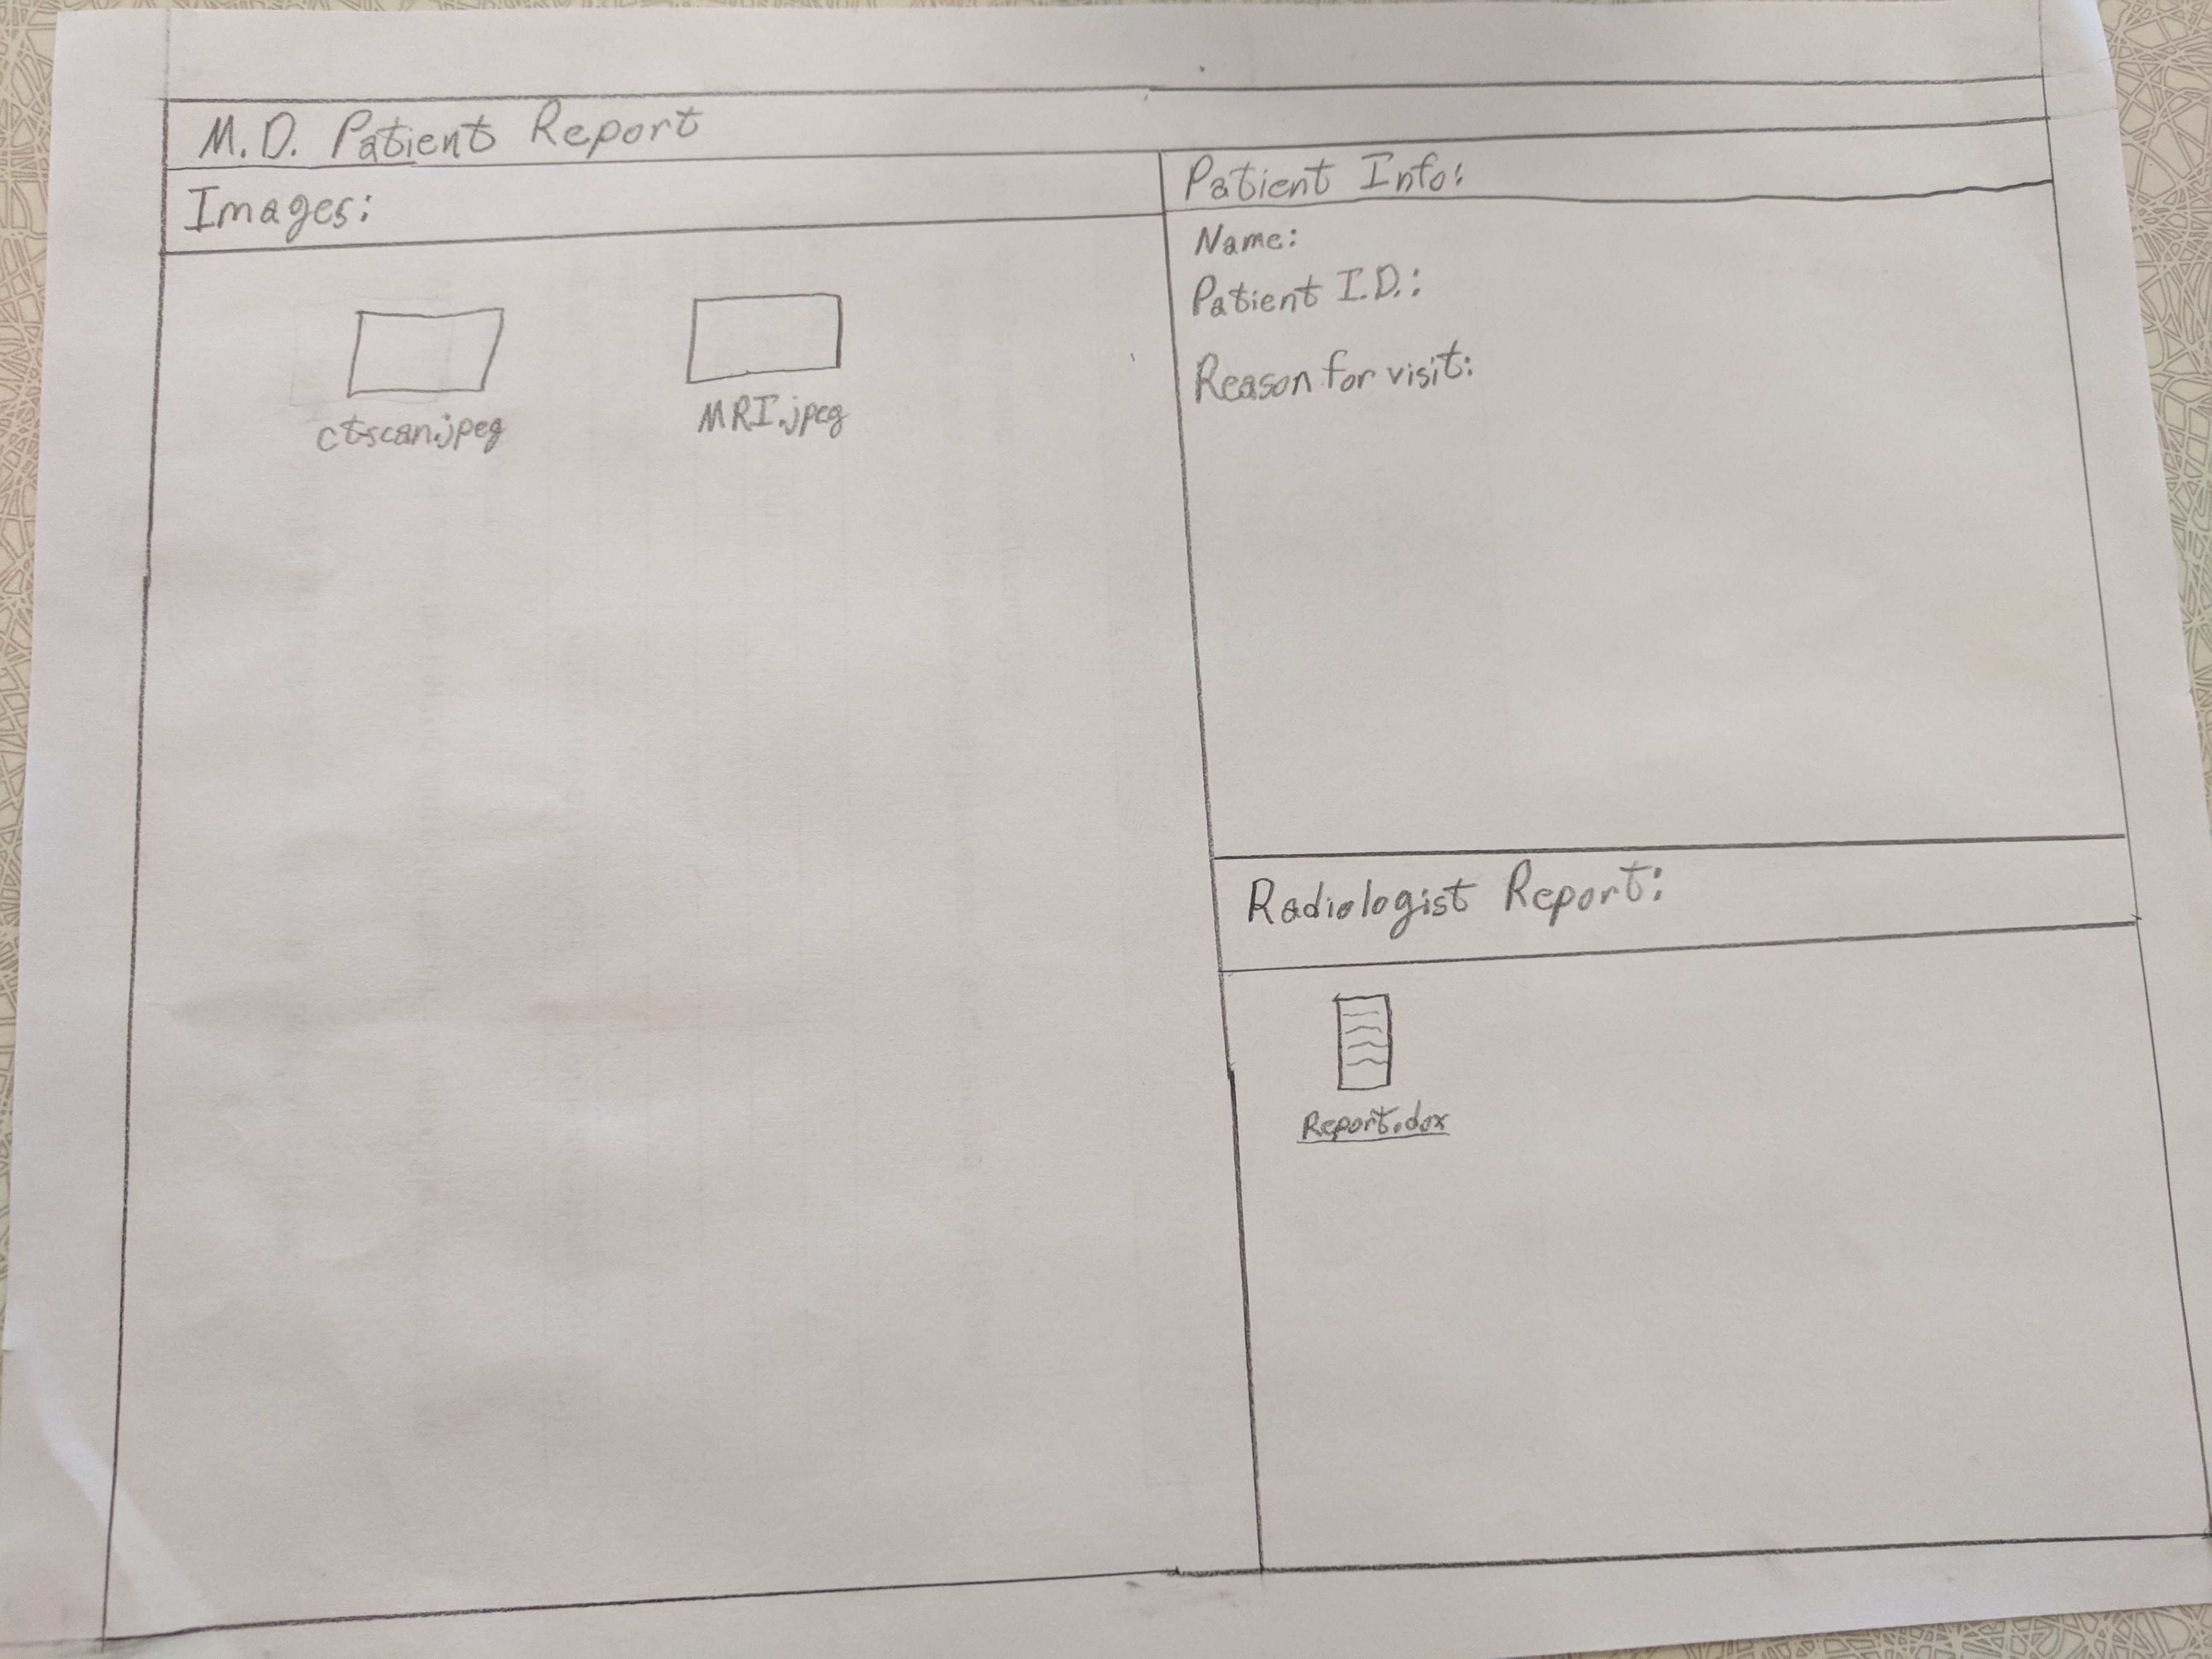 M.D. Patient Report
Images:
ctscan.jpeg
MRI.jpeg
Patient Info:
Name:
Patient I.D.:
Reason for visit:
Radiologist Report:
Report.dox